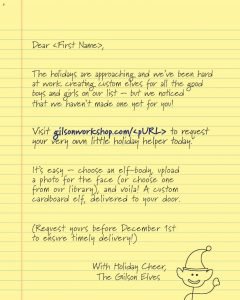 Dear <First Name>,
The holidays are approaching, and we've been hard
at work, creating custom elves for all the good
boys and girls on our list – but we noticed
that we haven't made one yet for you!
Visit gilsonworkshop.com/<pURL> to request
your very own little holiday helper today.
It's easy – choose an elf-body, upload
a photo for the face (or choose one
from our library), and voila! A custom
cardboard elf, delivered to your door.
(Request yours before December 1st
to ensure timely delivery!)
With Holiday Cheer,
The Gilson Elves